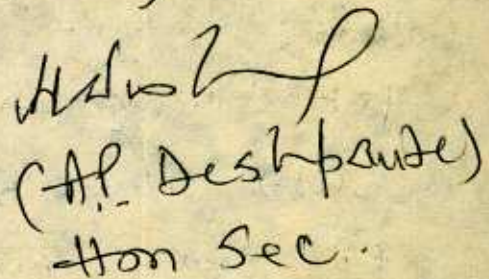 (A.P. Deshpande)
Hon Sec.